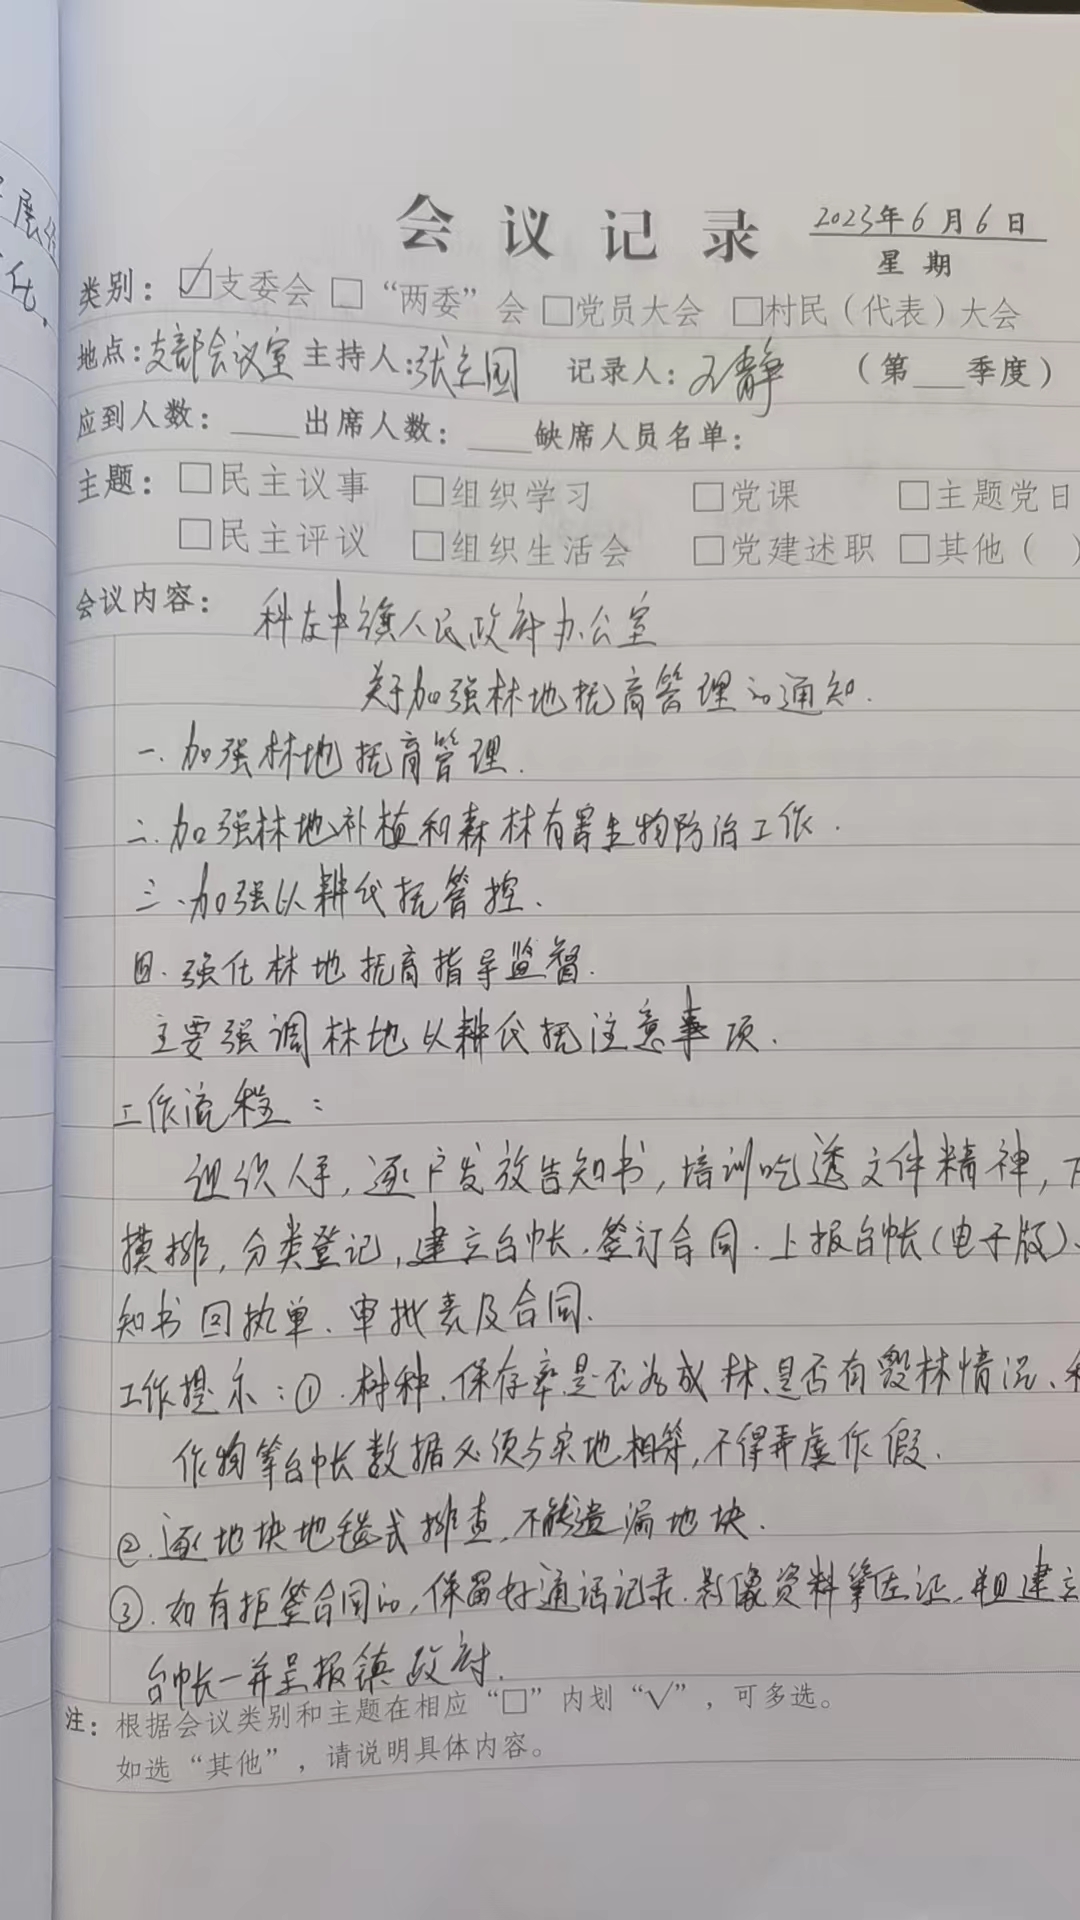 展经
化.
会议记录
2023年6月6日
星期
类别：☑支委会 □“两委”会 □党员大会 □村民（代表）大会
地点:支部会议室 主持人:张立国 记录人：王静 （第___季度）
应到人数：____出席人数：____缺席人员名单：
主题：□民主议事 □组织学习 □党课 □主题党日
□民主评议 □组织生活会 □党建述职 □其他（ ）
会议内容： 科左中旗人民政府办公室
关于加强林地抚育管理的通知.
一.加强林地抚育管理.
二.加强林地补植和森林有害生物防治工作.
三.加强以耕代抚管控.
四.强化林地抚育指导监督.
主要强调林地以耕代抚注意事项.
工作流程：
组织人手,逐户发放告知书,培训吃透文件精神,下
摸排,分类登记,建立台帐.签订合同.上报台帐(电子版)、
知书回执单、审批表及合同.
工作提示:①.树种、保存率是否为成林、是否有毁林情况、
作物等台帐数据必须与实地相符,不得弄虚作假.
②.逐地块地毯式排查,不能遗漏地块.
③.如有拒签合同的,保留好通话记录.影像资料等佐证,并且建立
台帐一并呈报镇政府.
注：根据会议类别和主题在相应“□”内划“√”，可多选。
如选“其他”，请说明具体内容。